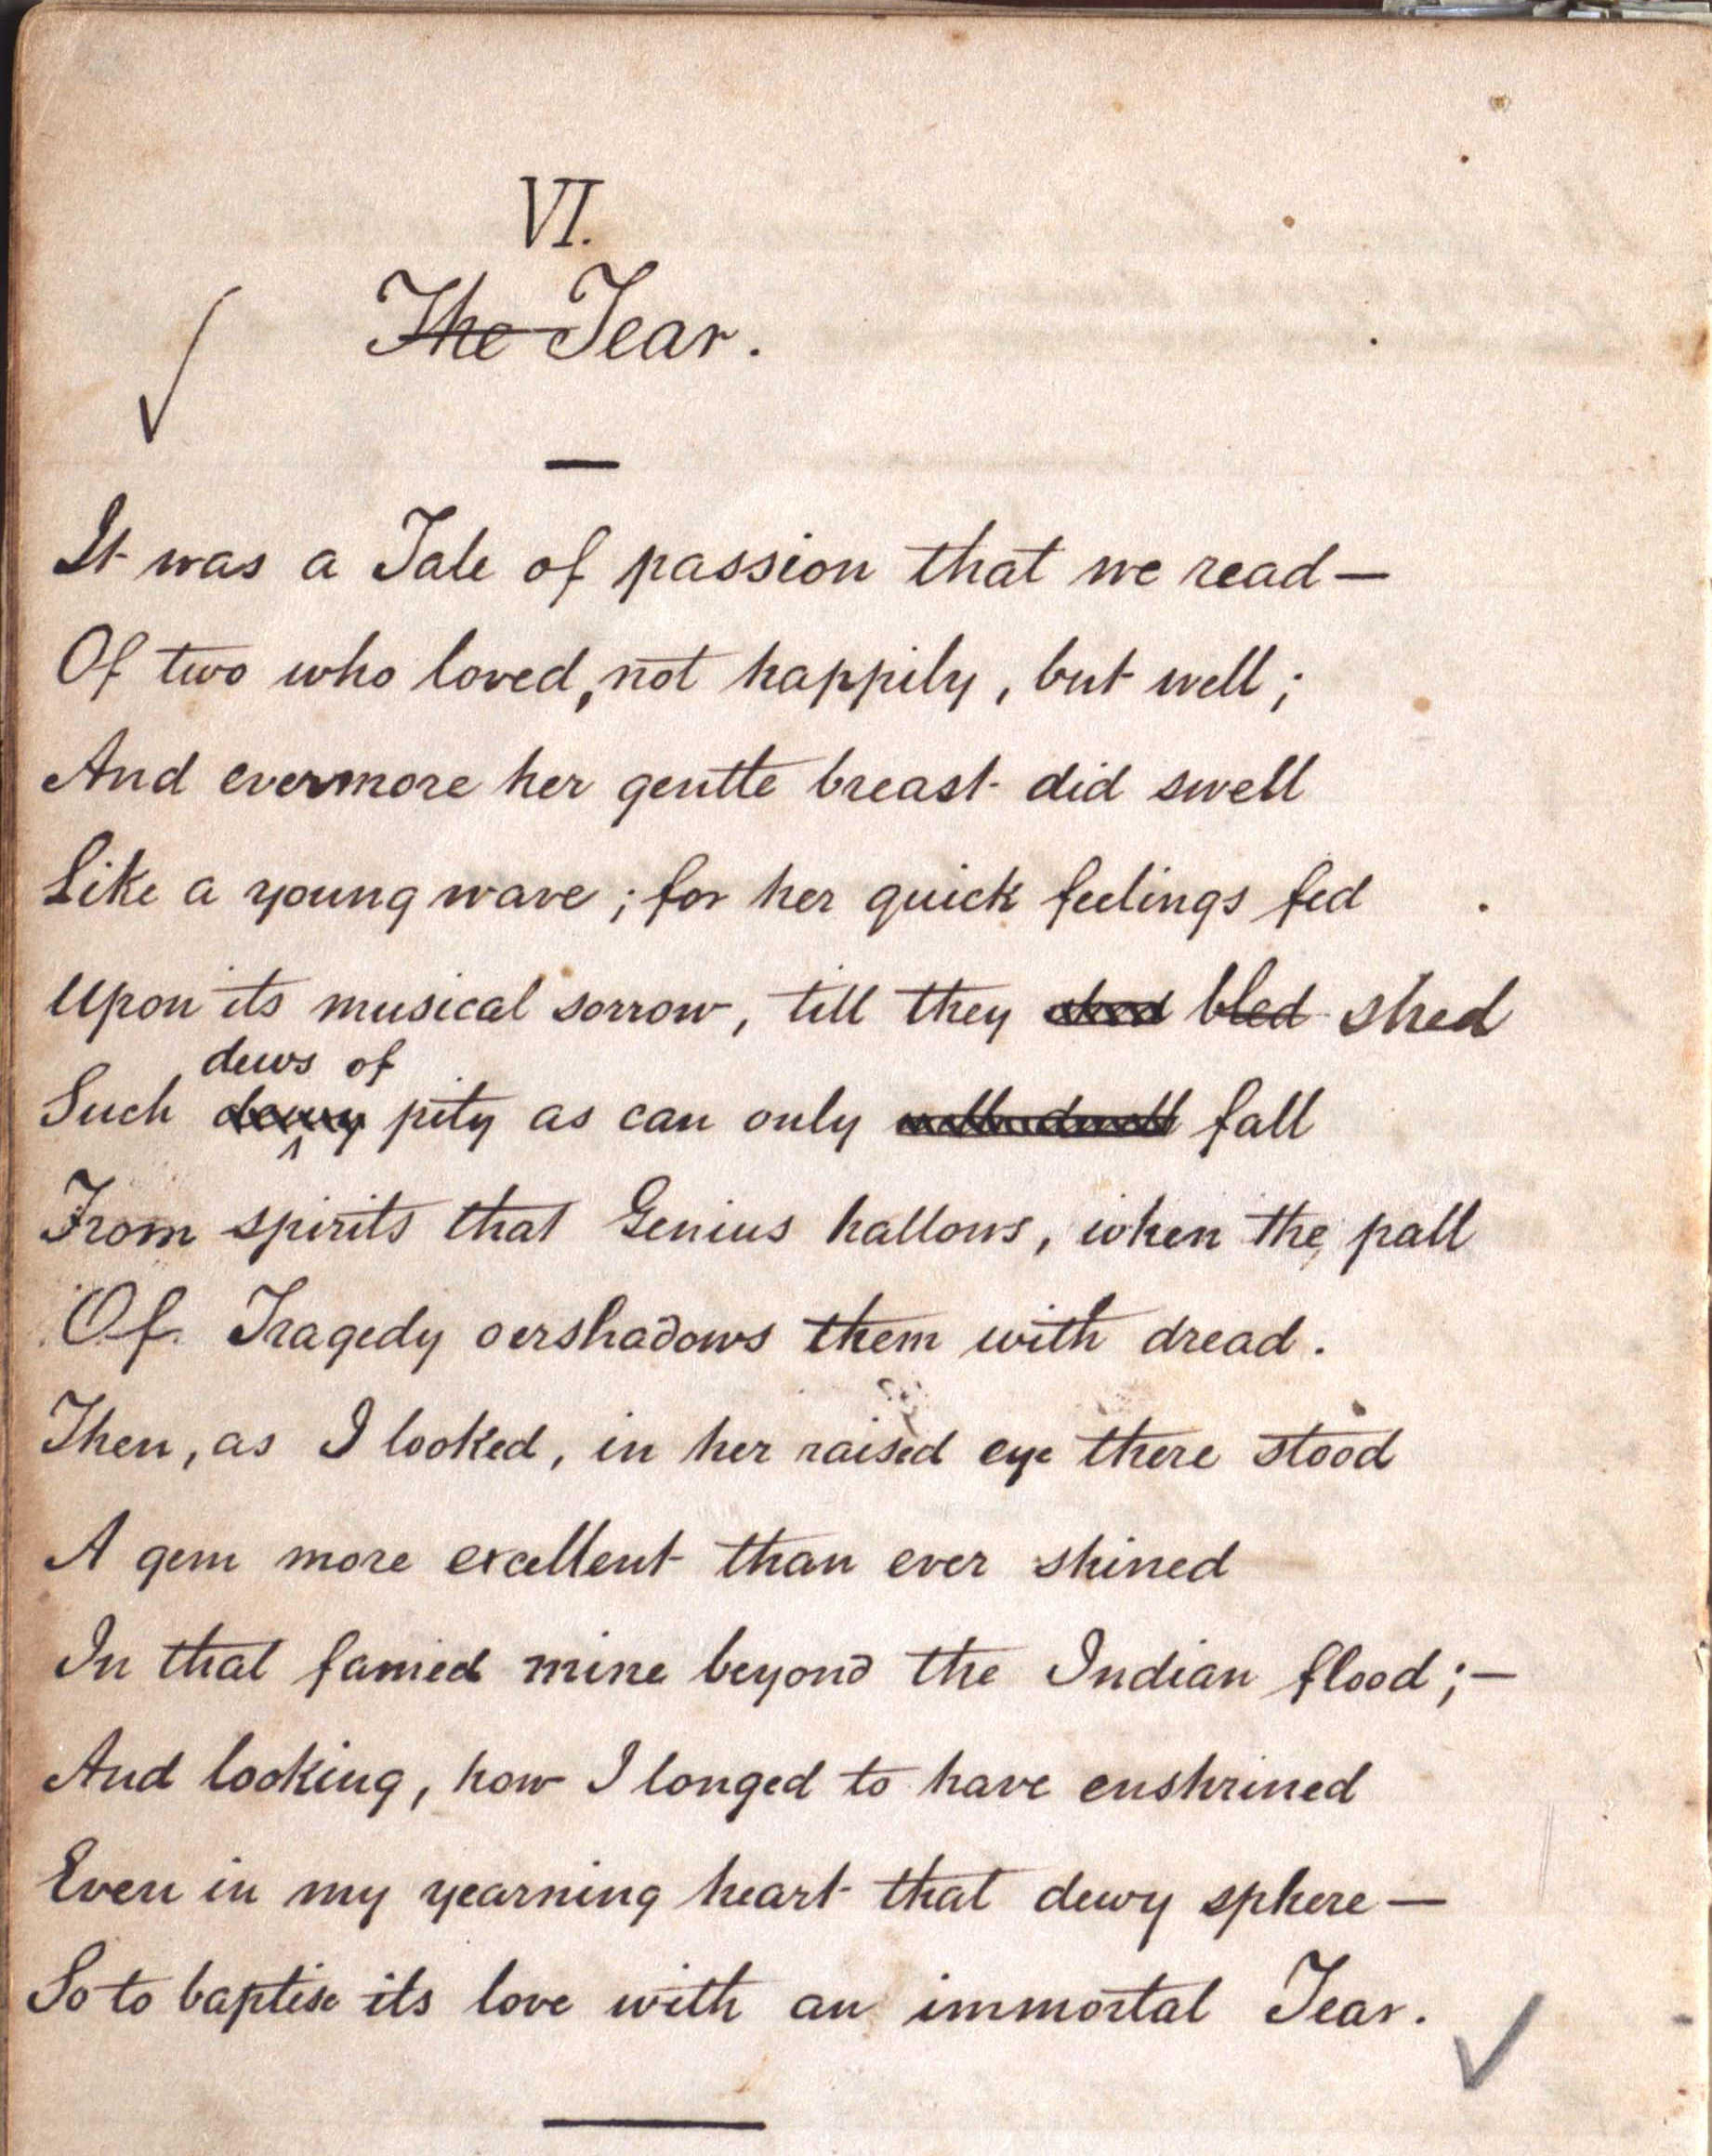 VI.
The Tear.
It was a Tale of passion that we read—
Of two who loved, not happily, but well;
And evermore her gentle breast did swell
Like a young wave; for her quick feelings fed
Upon its musical sorrow, till they shed bled shed
dews of
Such dewy pity as can only fall
From spirits that Genius hallows, when the pall
Of Tragedy oershadows them with dread.
Then, as I looked, in her raised eye there stood
A gem more excellent than ever shined
In that famed mine beyond the Indian flood;—
And looking, how I longed to have enshrined
Even in my yearning heart that dewy sphere—
So to baptise its love with an immortal Tear.